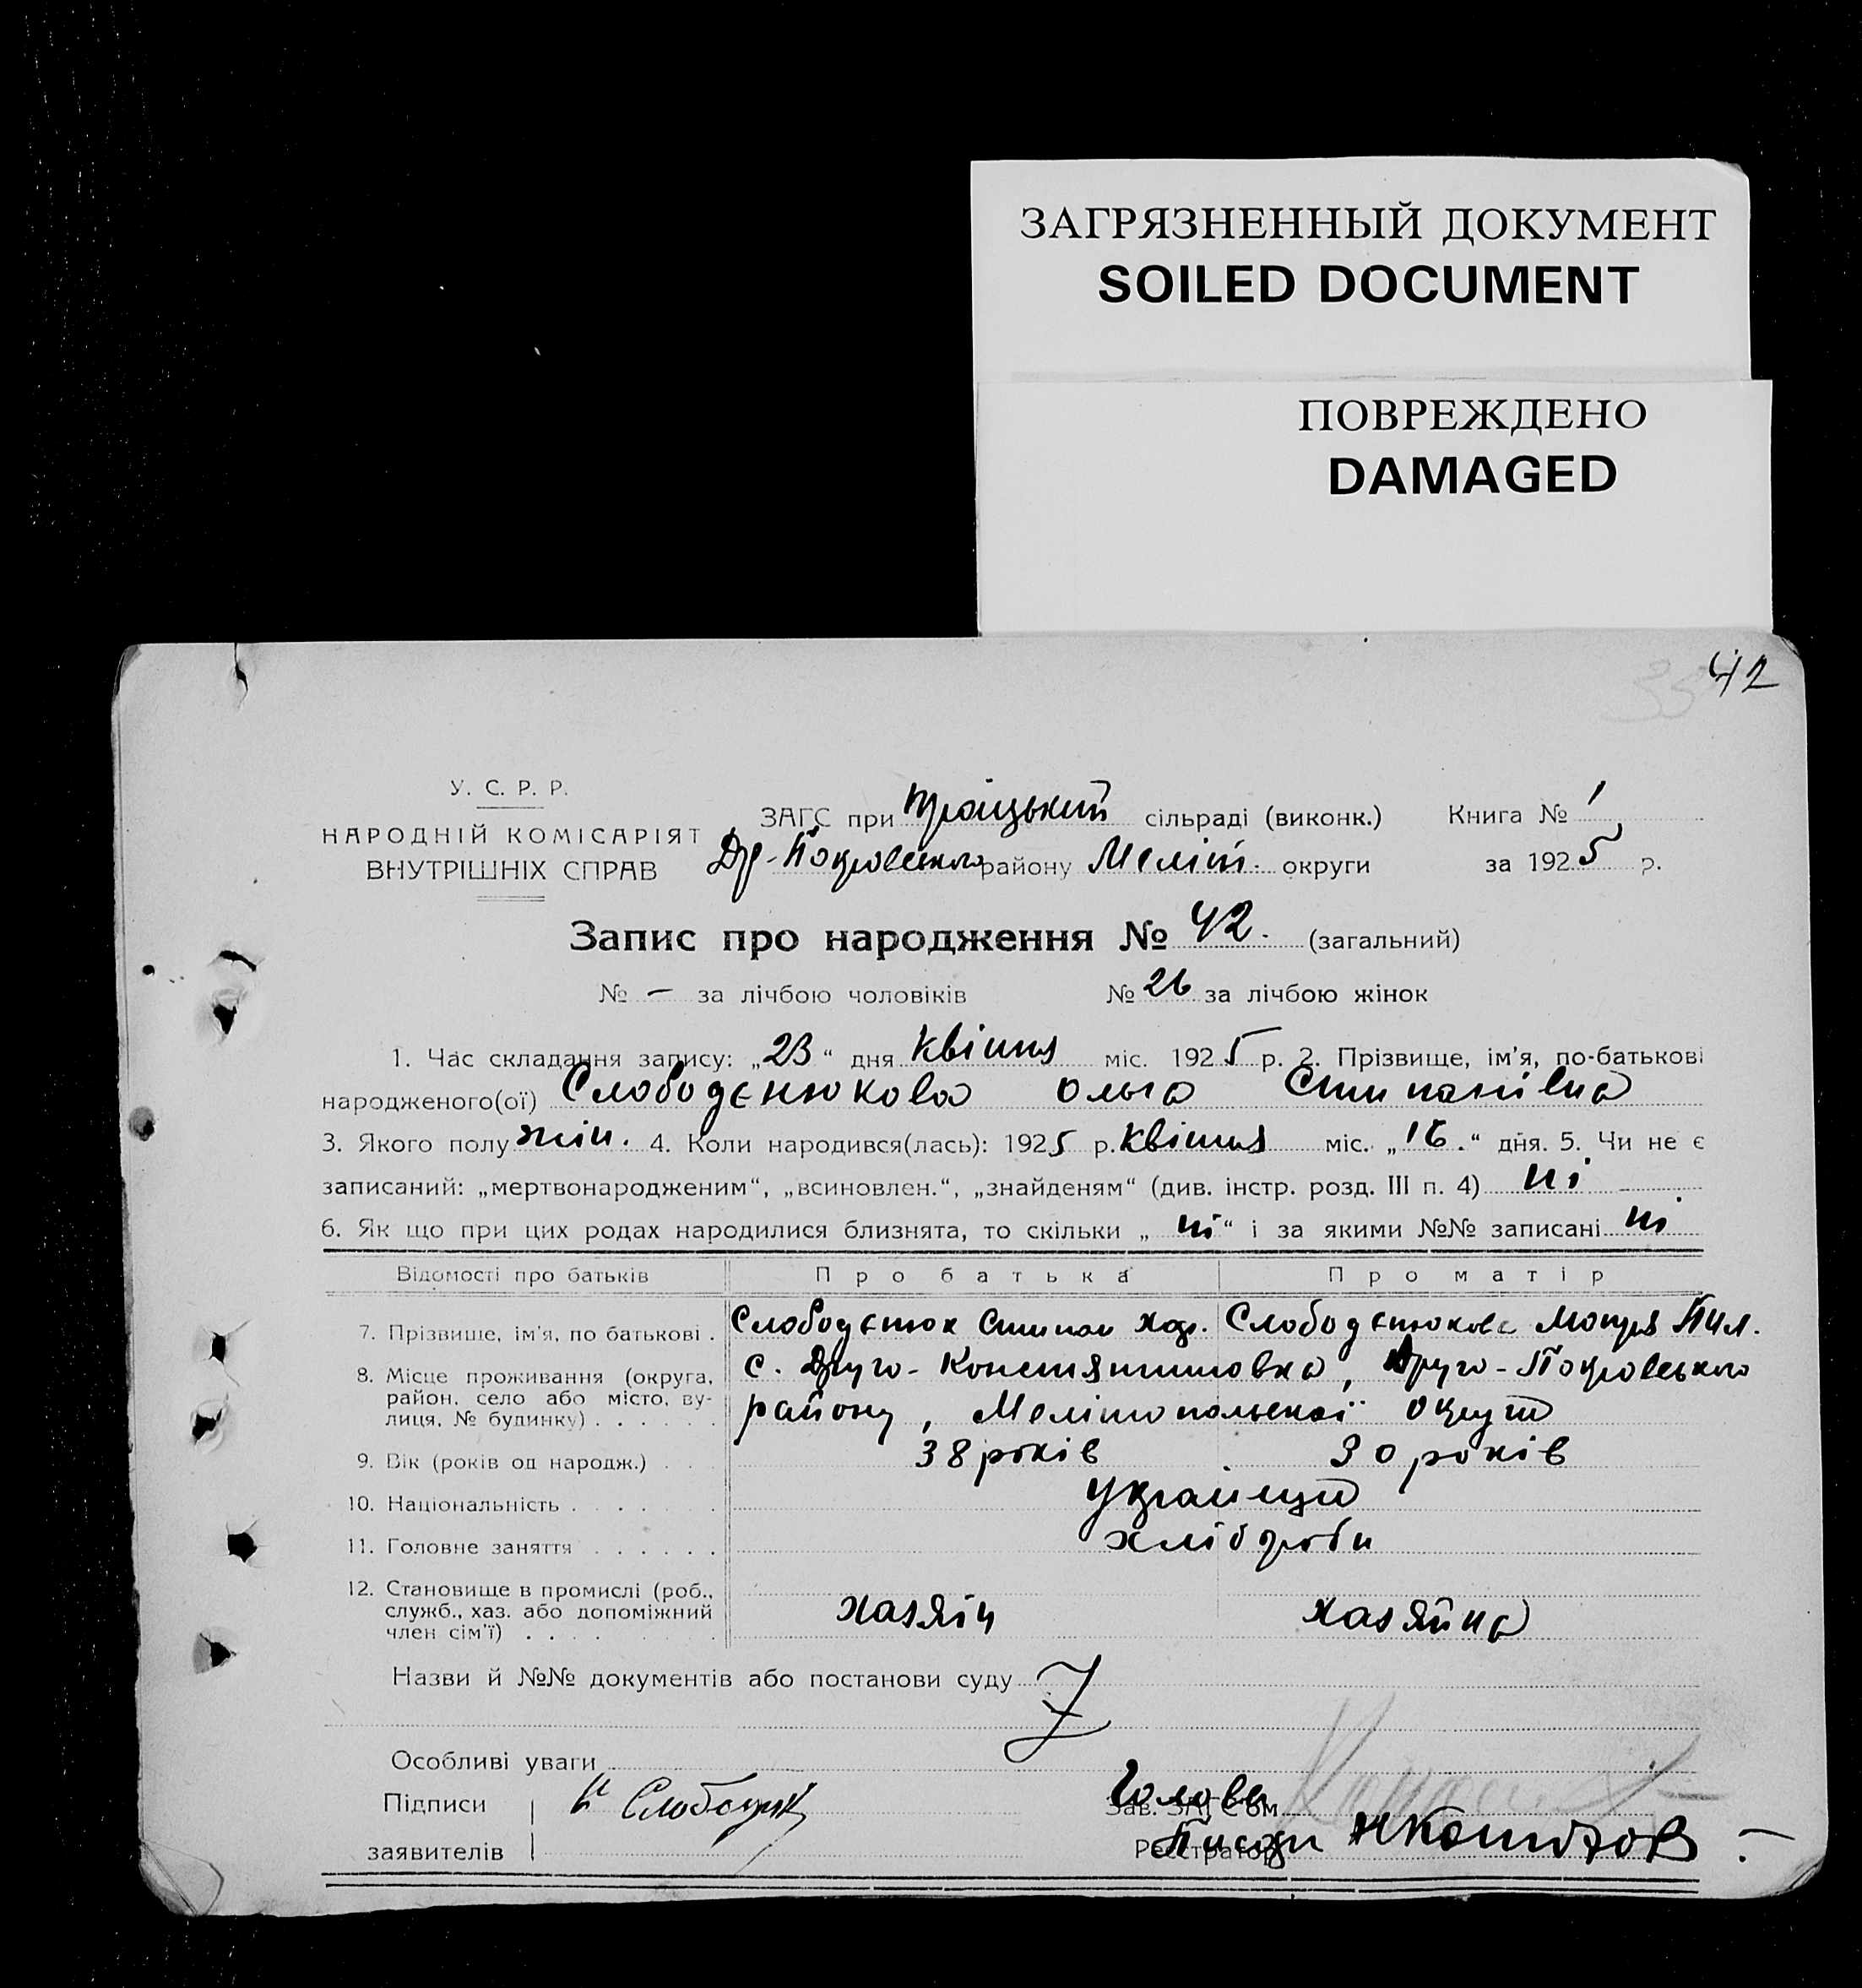 ЗАГРЯЗНЕННЫЙ ДОКУМЕНТ
SOILED DOCUMENT
ПОВРЕЖДЕНО
DAMAGED
42
У. С. Р. Р.
НАРОДНІЙ КОМІСАРІЯТ
ВНУТРІШНІХ СПРАВ
ЗАГС при Троіцький сільраді (виконк.) Книга № 1
Др-Покровського району Меліт. округи за 1925 р.
Запис про народження № 42. (загальний)
№ – за лічбою чоловіків № 26 за лічбою жінок
1. Час складання запису: „23“ дня квітня міс. 1925 р. 2. Прізвище, ім'я, по-батькові
народженого(ої) Слободенюкова Ольга Степанівна
3. Якого полу жін. 4. Коли народився(лась): 1925 р. квітня міс. „16.“ дня. 5. Чи не є
записаний: „мертвонародженим“, „всиновлен.“, „знайденям“ (див. інстр. розд. III п. 4) ні
6. Як що при цих родах народилися близнята, то скільки „ні“ і за якими №№ записані ні
Відомості про батьків Про батька Про матір
7. Прізвище, ім'я, по батькові . Слободенюк Степан Хар. Слободенюкова Мотря Пил.
8. Місце проживання (округа, район, село або місто, вулиця, № будинку) с. Друго-Константиновка, Друго-Покровського
району, Мелітопольскоі округи
9. Вік (років од народж.) 38 років 30 років
10. Національність українці
11. Головне заняття хлібороби
12. Становище в промислі (роб.,
служб., хаз. або допоміжний
член сім'ї) хазяін хазяйка
Назви й №№ документів або постанови суду
Особливі уваги
Підписи
заявителів
Голова
Зав. ЗАГС'ом
Реєстратор